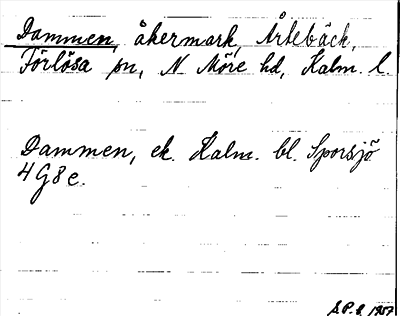 Dammen, åkermark, Årlebäck,
Förlösa sn, N Möre hd, Kalm. l.
Dammen, ek. Kalm. bl. Sporsjö
4G8e.
1957